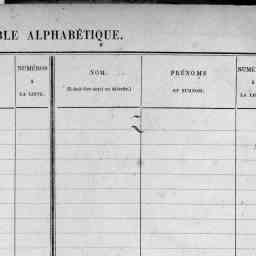 BLE ALPHABÉTIQUE.
NUMÉROS
à
LA LISTE.
NOM.
(Il doit être écrit en bâtarde.)
PRÉNOMS
ET SURNOMS.
NUMÉ
à
LA LI